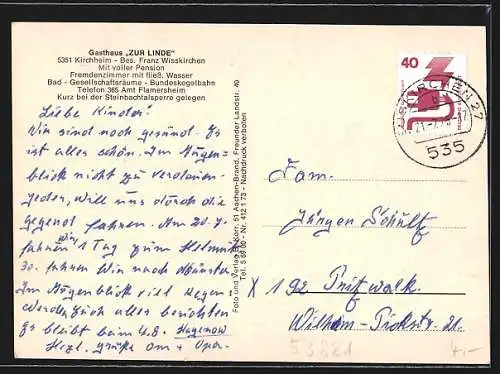 Gasthaus „ZUR LINDE"
5351 Kirchheim - Bes. Franz Wisskirchen
Mit voller Pension
Fremdenzimmer mit fließ. Wasser
Bad - Gesellschaftsräume - Bundeskegelbahn
Telefon 365 Amt Flamersheim
Kurz bei der Steinbachtalsperre gelegen
Liebe Kinder!
Wir sind noch gesund. Es
ist alles schön. Im Augen-
blick nicht zu
Jeder, will uns durch die
gegend fahren. Am 20.7.
fahren wir 1 Tag zum Helmut
30. fahren Wir nach Münster
Im Augenblick viel Regen.
Werden Euch alles berichten
Es bleibt beim 4.8. Hagenow
Herzl. grüße Om + Opa.
Foto und Verlag B. Korr, 51 Aachen-Brand, Freunder Landstr. 40
Tel. 5 69 00 - Nr. 412 1 73 - Nachdruck verboten
40
EUSKIRCHEN 27
535
Fam.
Jürgen Schultz
X 192 Pritzwalk.
Wilhelm-Pieckstr. 21.
53881
4,-